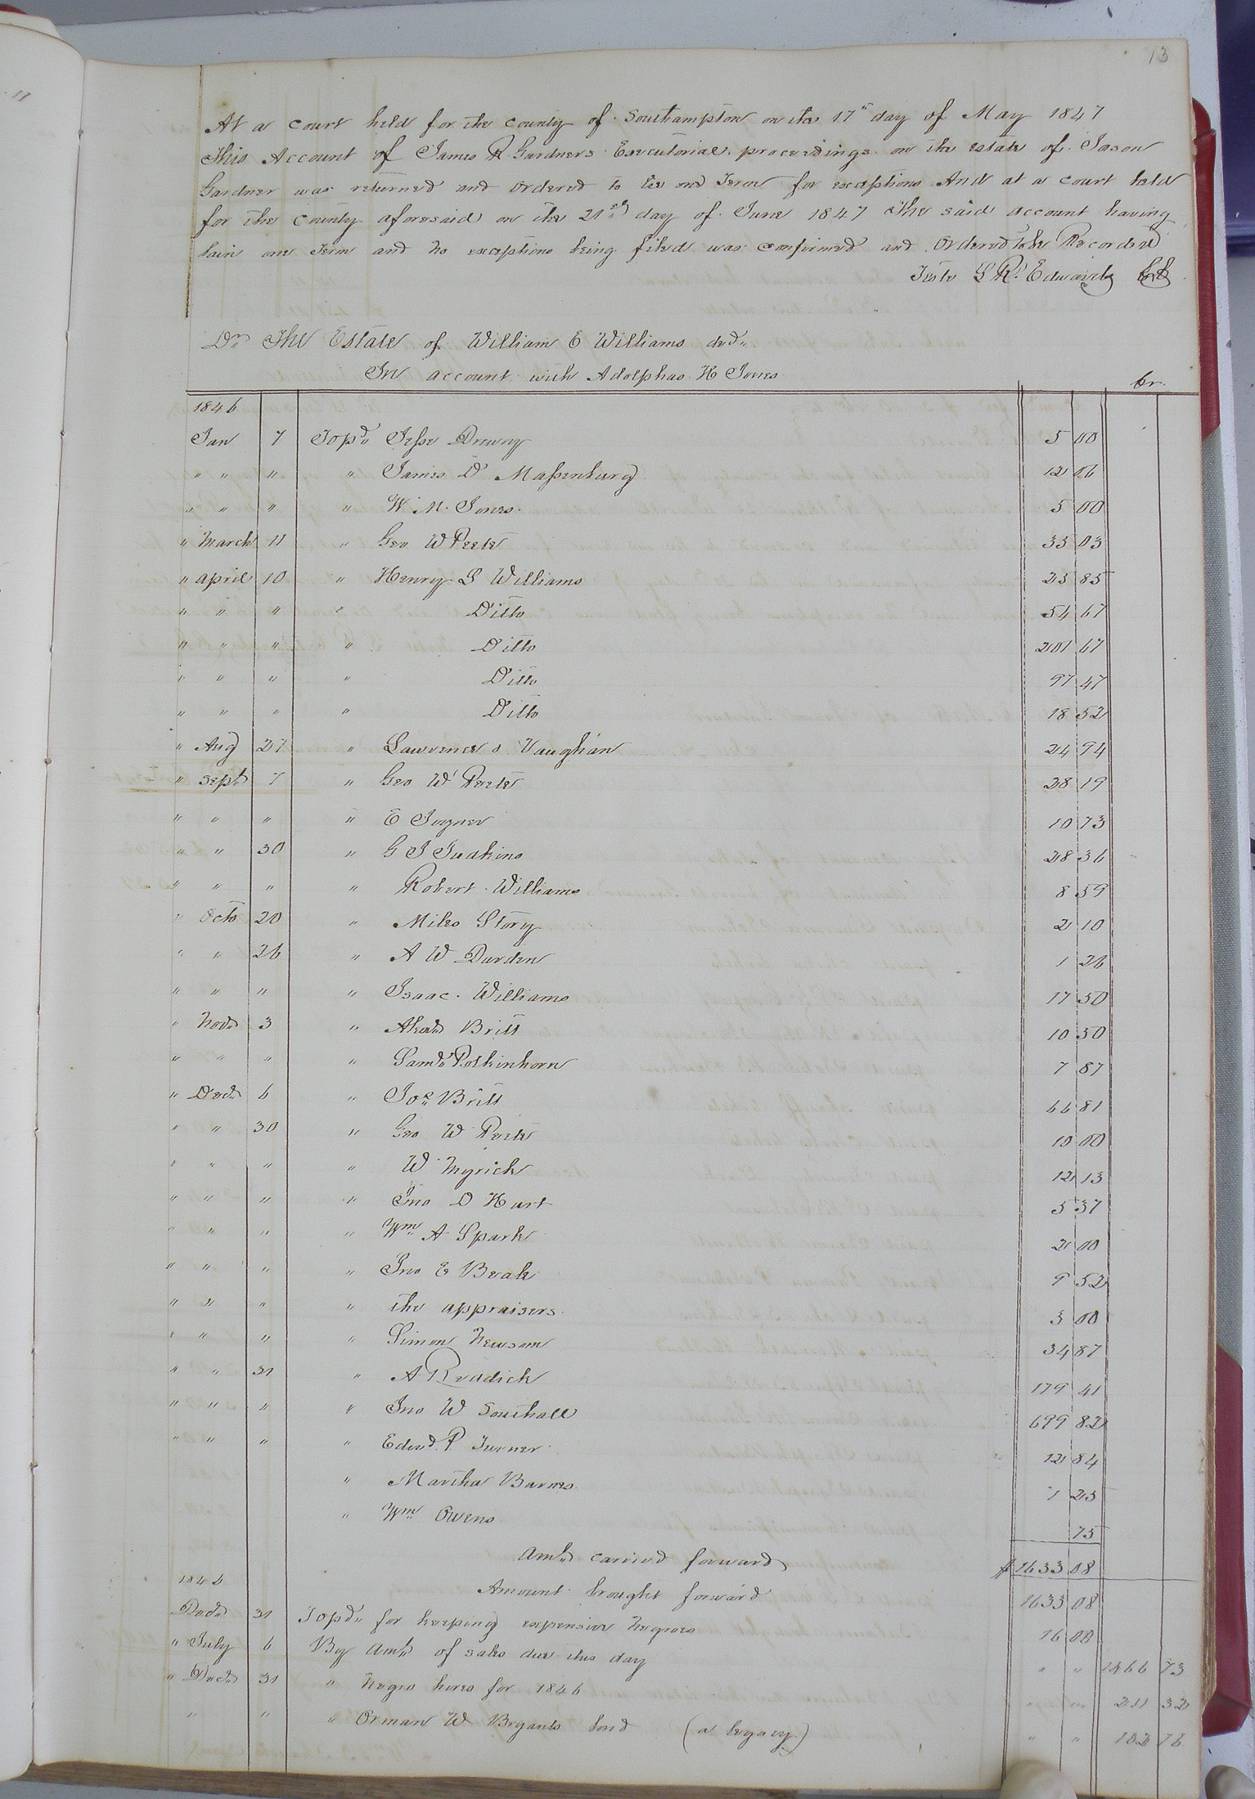 13
At a court held for the county of Southampton on the 17th day of May 1847
This Account of James R Gardners Executorial proceedings on the estate of Jason
Gardner was returned and ordered to lie one Term for exceptions And at a court held
for the county aforesaid on the 21st day of June 1847 The said account having
lain one Term and no exceptions being filed was confirmed and Ordered to be Recorded
Teste L R Edwards Clk
Dr The Estate of William E Williams decd
In account with Adolphas H Jones Cr
1846
Jan 7 To pd Jesse Drewry 5 00
" " " " James D Massenburg 12 06
" " " " W. M. Jones 5 00
" March 11 " Geo W Peete 33 03
" April 10 " Henry L Williams 23 85
" " " " Ditto 54 67
" " " " Ditto 201 67
" " " " Ditto 97 47
" " " " Ditto 18 52
" Aug 27 " Lawrence & Vaughan 24 94
" Sept 7 " Geo W Peete 28 19
" " " " E Joyner 10 73
" " 30 " G J Judkins 28 36
" " " " Robert Williams 8 59
" Octo 20 " Miles Story 2 10
" " 26 " A W Darden 1 26
" " " " Isaac Williams 17 50
" Novr 3 " Britt 10 50
" " " " Saml 7 87
" Decr 6 " Jos Britt 66 81
" " 30 " Geo W Peete 10 00
" " " " W Myrick 12 13
" " " " Jno D Hart 5 37
" " " " Wm A Spark 2 00
" " " " Jno E Beale 9 52
" " " " the appraisers 3 00
" " " " Simon Newsom 34 87
" " 31 " A Riddick 179 41
" " " " Jno W Southall 699 82
" " " " Edwd P Turner 12 84
" Martha Barnes 1 25
" Wm Owens 75
Amt carried forward $1633 08
1846 Amount brought forward 1633 08
Decr 31 To pd for keeping expensive Negroes 16 00
" July 6 By Amt of sales due this day " " 1466 73
" Decr 31 " Negro hires for 1846 " " 211 32
" " " Orman W Bryants bond (a legacy) " " 102 76